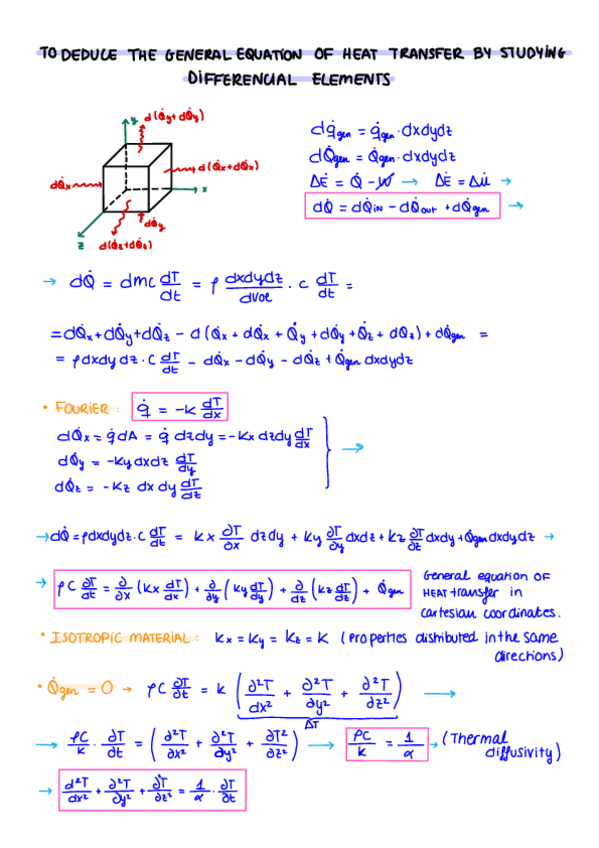 TO DEDUCE THE GENERAL EQUATION OF HEAT TRANSFER BY STUDYING
DIFFERENCIAL ELEMENTS
y d(Q̇y+dQ̇y)
dq̇gen = q̇gen·dxdydz
dQ̇gen = Q̇gen·dxdydz
d(Q̇x+dQ̇x)
dQ̇x
x
ΔĖ = Q̇ - Ẇ → ΔĖ = Δu̇ →
dQ̇ = dQ̇IN - dQ̇out + dQ̇gen →
dQ̇y
z d(Q̇z+dQ̇z)
→ dQ̇ = dmc dT/dt = ρ dxdydz/dvol · c dT/dt =
= dQ̇x+dQ̇y+dQ̇z - d(Q̇x + dQ̇x + Q̇y + dQ̇y + Q̇z + dQ̇z) + dQ̇gen =
= ρdxdydz·C dT/dt - dQ̇x - dQ̇y - dQ̇z + Q̇gen dxdydz
• FOURIER: q̇ = -K dT/dx
dQ̇x = q̇dA = q̇ dzdy = -Kx dzdy dT/dx
dQ̇y = -Ky dxdz dT/dy
dQ̇z = -Kz dx dy dT/dz
→
→ dQ̇ = ρdxdydz·C dT/dt = Kx ∂T/∂x dzdy + Ky ∂T/∂y dxdz + Kz ∂T/∂z dxdy + Q̇gen dxdydz →
→ ρC ∂T/∂t = ∂/∂x (Kx dT/dx) + ∂/∂y (Ky dT/dy) + ∂/∂z (Kz dT/dz) + Q̇gen
General equation OF
HEAT transfer in
cartesian coordinates.
• ISOTROPIC MATERIAL: Kx = Ky = Kz = K (Properties distributed in the same
directions)
• Q̇gen = 0 → ρC ∂T/∂t = K (∂²T/dx² + ∂²T/∂y² + ∂²T/∂z²) →
ΔT
→ ρC/K · ∂T/∂t = (∂²T/∂x² + ∂²T/∂y² + ∂T²/∂z²) → ρC/K = 1/α → (Thermal
diffusivity)
→ d²T/dx² + ∂²T/∂y² + ∂²T/∂z² = 1/α · ∂T/∂t